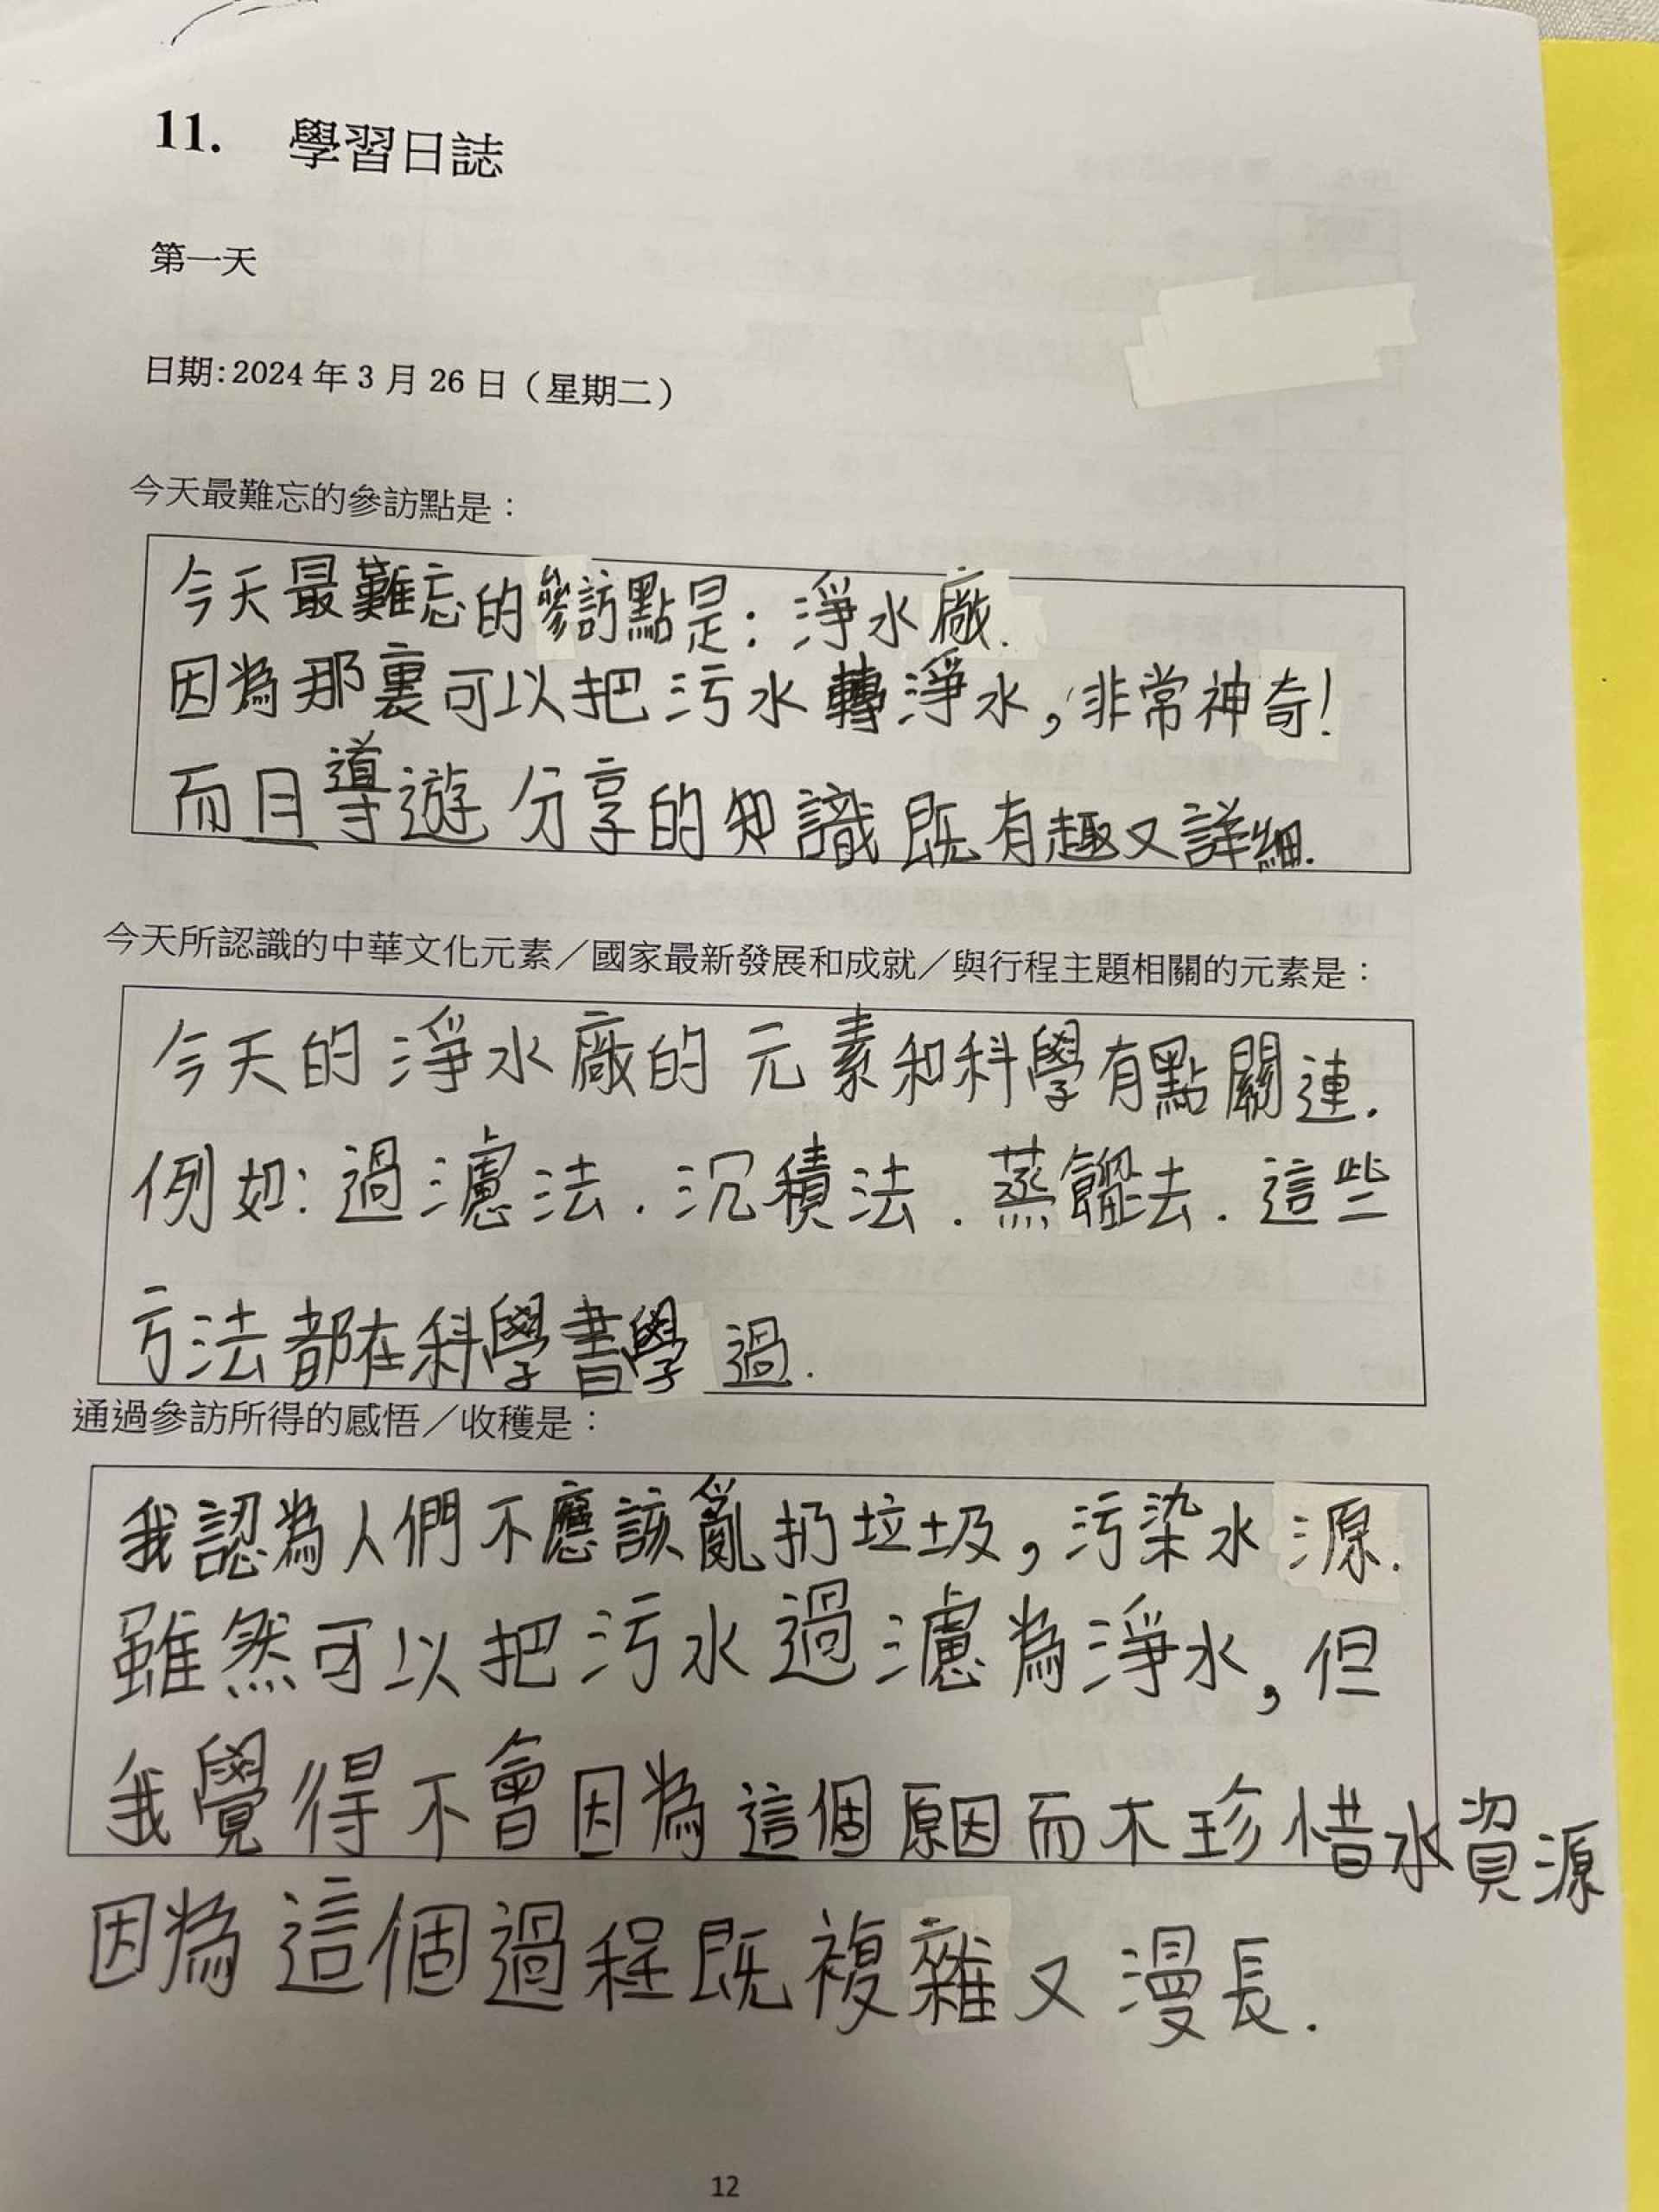 11. 學習日誌
第一天
日期:2024年3月26日（星期二）
今天最難忘的參訪點是：
今天最難忘的參訪點是：淨水廠.
因為那裏可以把污水轉淨水,非常神奇!
而且導遊分享的知識既有趣又詳細.
今天所認識的中華文化元素／國家最新發展和成就／與行程主題相關的元素是：
今天的淨水廠的元素和科學有點關連.
例如：過濾法.沉積法.蒸餾法.這些
方法都在科學書學過.
通過參訪所得的感悟／收穫是：
我認為人們不應該亂扔垃圾,污染水源.
雖然可以把污水過濾為淨水,但
我覺得不會因為這個原因而不珍惜水資源
因為這個過程既複雜又漫長.
12